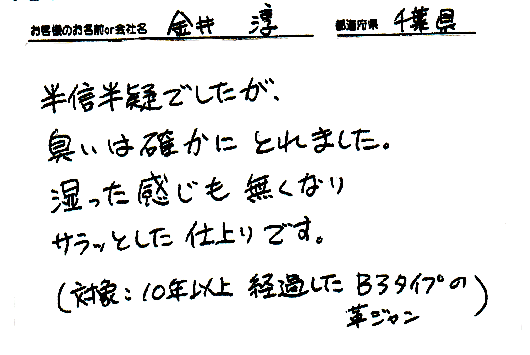 お客様のお名前or会社名 金井 淳 都道府県 千葉県
半信半疑でしたが、
臭いは確かにとれました。
湿った感じも無くなり
サラッとした仕上りです。
(対象:10年以上経過したB3タイプの
革ジャン)